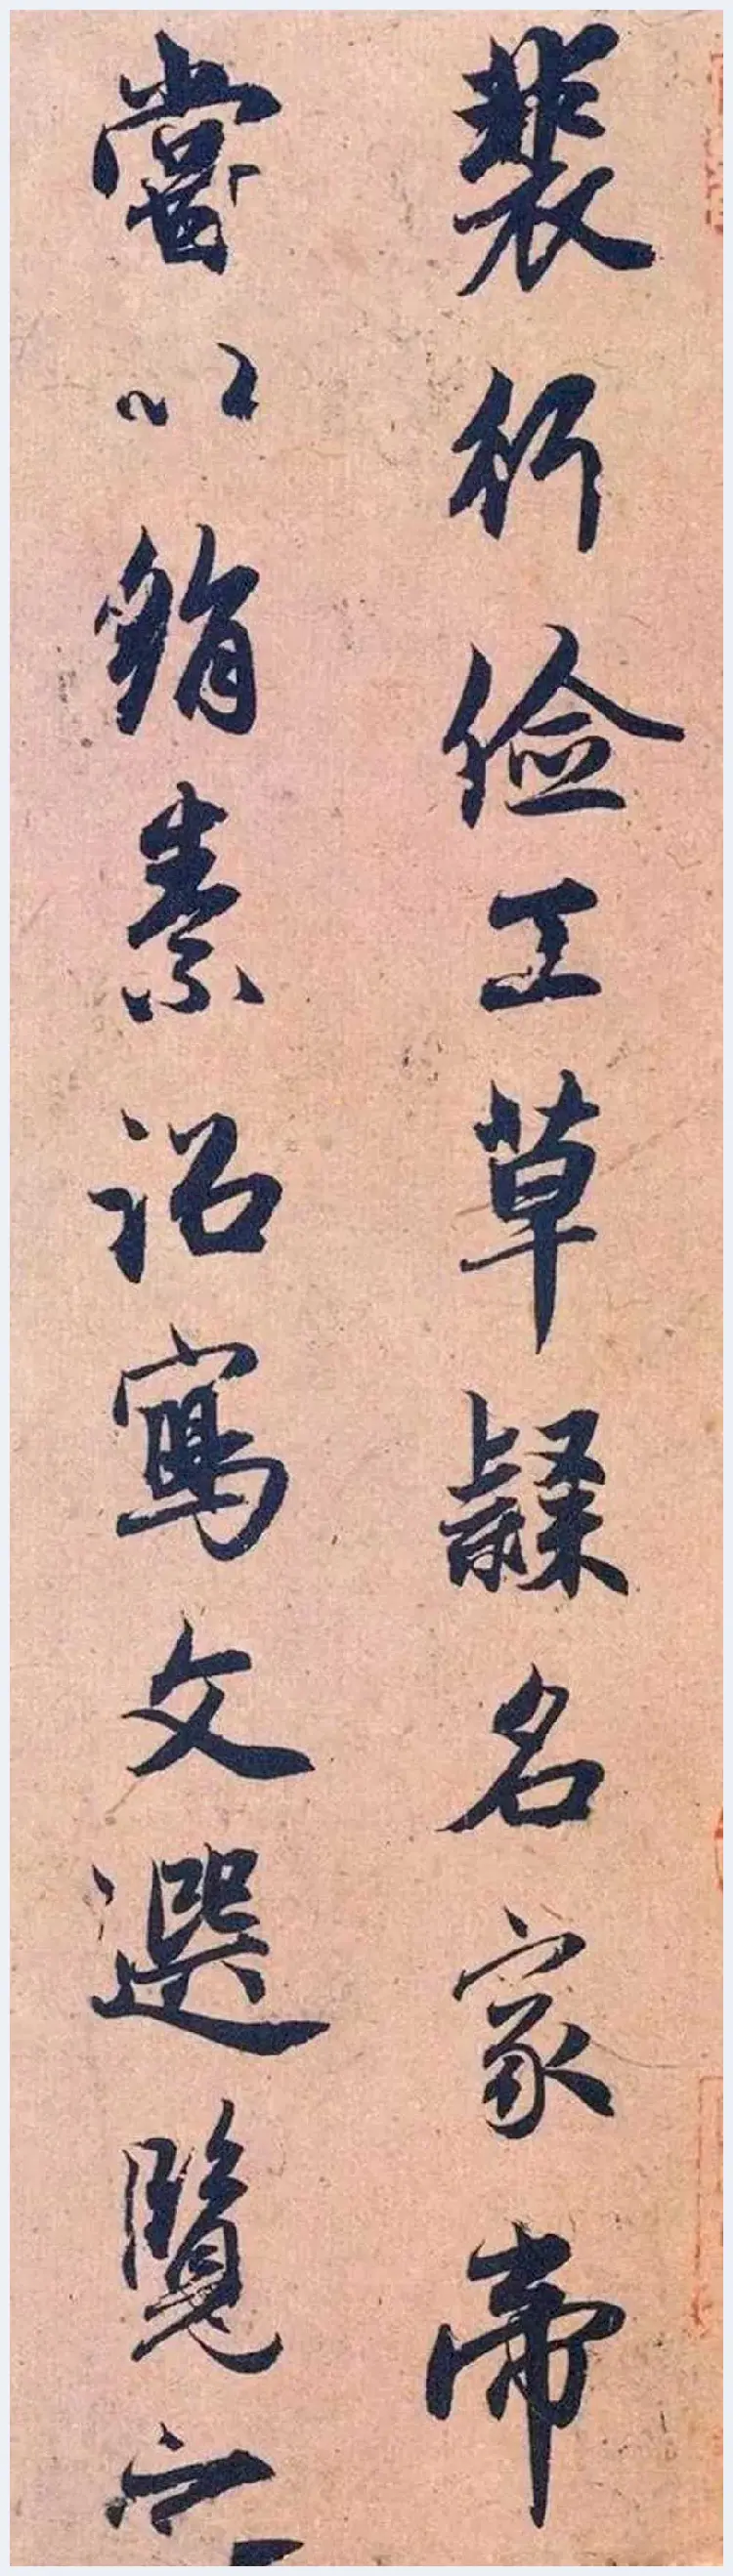 裴行儉工草隸名家帝
嘗以絹素詔寫文選覽之